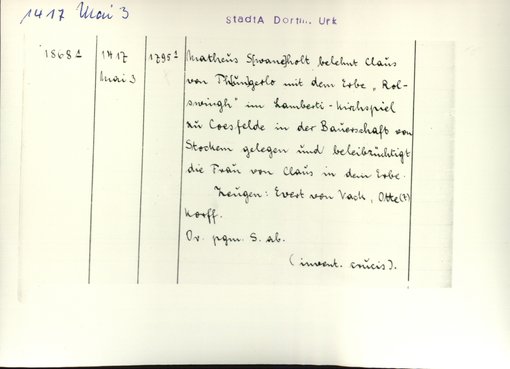 1417 Mai 3
StadtA Dortm. Urk
1868a 1417 Mai 3 1795a
Matheus S(wane)holt belehnt Claus
von mit dem Erbe „Rol-
swingh“ im Lamberti-Kirchspiel
zu Coesfelde in der Bauerschaft von
Stockem gelegen und beleibzüchtigt
die Frau von Claus in dem Erbe.
Zeugen: Evert von Vack, Otte(?)
Korff.
Or. pgm. S. ab.
(invent. crucis).